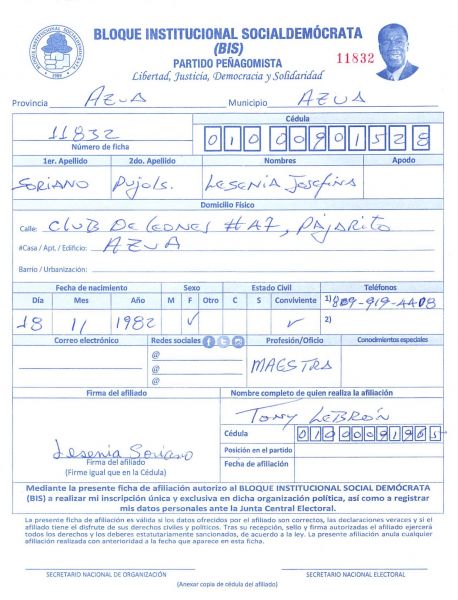 BLOQUE INSTITUCIONAL SOCIALDEMÓCRATA
(BIS)
PARTIDO PEÑAGOMISTA
Libertad, Justicia, Democracia y Solidaridad
11832
Provincia AZUA Municipio AZUA
11832
Número de ficha
Cédula
010 00901528
1er. Apellido 2do. Apellido Nombres Apodo
SORIANO Pujols. Lesenia Josefina
Domicilio Físico
Calle: CLUB DE LEONES #A7, PAJARITO
#Casa / Apt. / Edificio: AZUA
Barrio / Urbanización:
Fecha de nacimiento Sexo Estado Civil Teléfonos
Día Mes Año M F Otro C S Conviviente 1) 809-919-4408
18 11 1982 ✓ ✓ 2)
Correo electrónico Redes sociales Profesión/Oficio Conocimientos especiales
@
@
@
MAESTRA
Firma del afiliado Nombre completo de quien realiza la afiliación
Tony LEBRÓN
Cédula
Lesenia Soriano
Posición en el partido
Firma del afiliado
(Firme igual que en la Cédula)
Fecha de afiliación
Mediante la presente ficha de afiliación autorizo al BLOQUE INSTITUCIONAL SOCIAL DEMÓCRATA
(BIS) a realizar mi inscripción única y exclusiva en dicha organización política, así como a registrar
mis datos personales ante la Junta Central Electoral.
La presente ficha de afiliación es válida si los datos ofrecidos por el afiliado son correctos, las declaraciones veraces y si el
afiliado tiene el disfrute de sus derechos civiles y políticos. Tras su recepción, sello y firma autorizadas el afiliado ejercerá
todos los derechos y los deberes estatutariamente sancionados, de acuerdo a la ley. La presente afiliación anula cualquier
afiliación realizada con anterioridad a la fecha que aparece en esta ficha.
SECRETARIO NACIONAL DE ORGANIZACIÓN SECRETARIO NACIONAL ELECTORAL
(Anexar copia de cédula del afiliado)